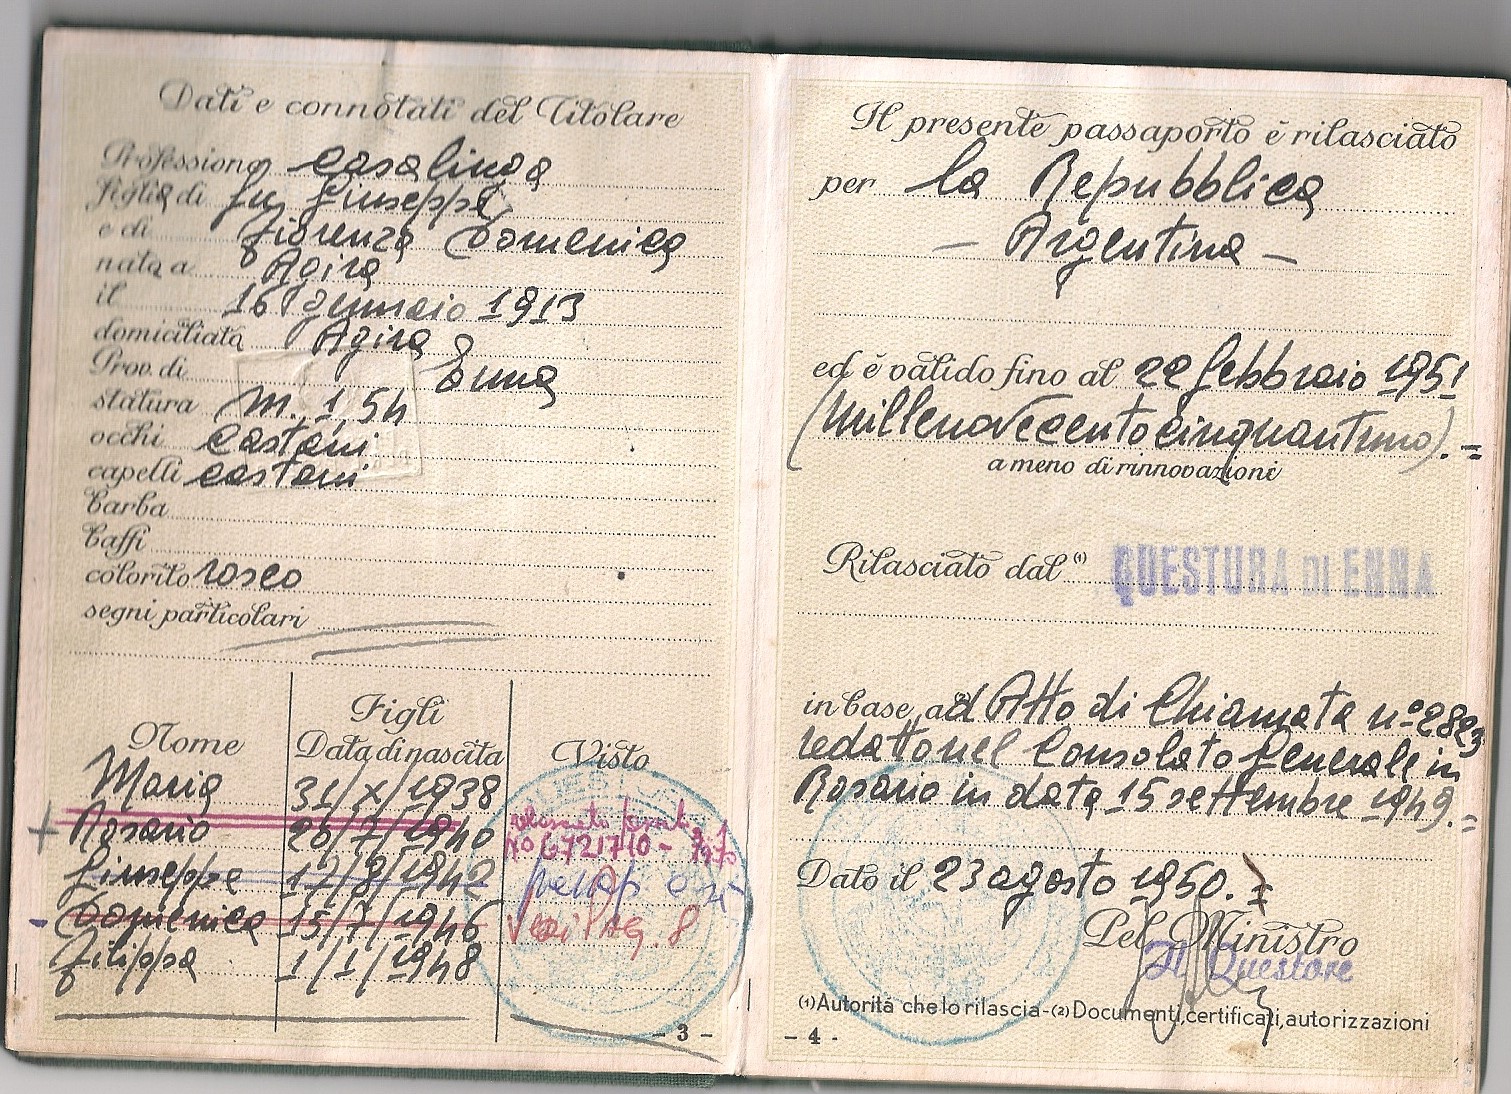 Dati e connotati del Titolare
Professione casalinga
figlia di fu Giuseppe
e di Fiorenza Domenica
nata a Agira
il 16 gennaio 1913
domiciliata Agira
Prov. di Enna
statura m. 1,54
occhi castani
capelli castani
barba
baffi
colorito roseo
segni particolari
Figli
Nome Data di nascita Visto
Maria 31/X/1938
Rosario 20/7/1940
N° 6721710 -
Giuseppe 17/8/1942
Domenica 15/7/1946 Vedi Pag. 8
Filippa 1/1/1948
- 3 -
Il presente passaporto è rilasciato
per la Repubblica
- Argentina -
ed è valido fino al 22 febbraio 1951
(millenovecentocinquantuno).=
a meno di rinnovazioni
Rilasciato dal (1) QUESTURA DI ENNA
in base ad (2) Atto di Chiamata n° 2823
redatto nel Consolato Generale in
Rosario in data 15 settembre 1949.=
Dato il 23 agosto 1950.=
Pel Ministro
Il Questore
(1) Autorità che lo rilascia-(2) Documenti, certificati, autorizzazioni
- 4 -